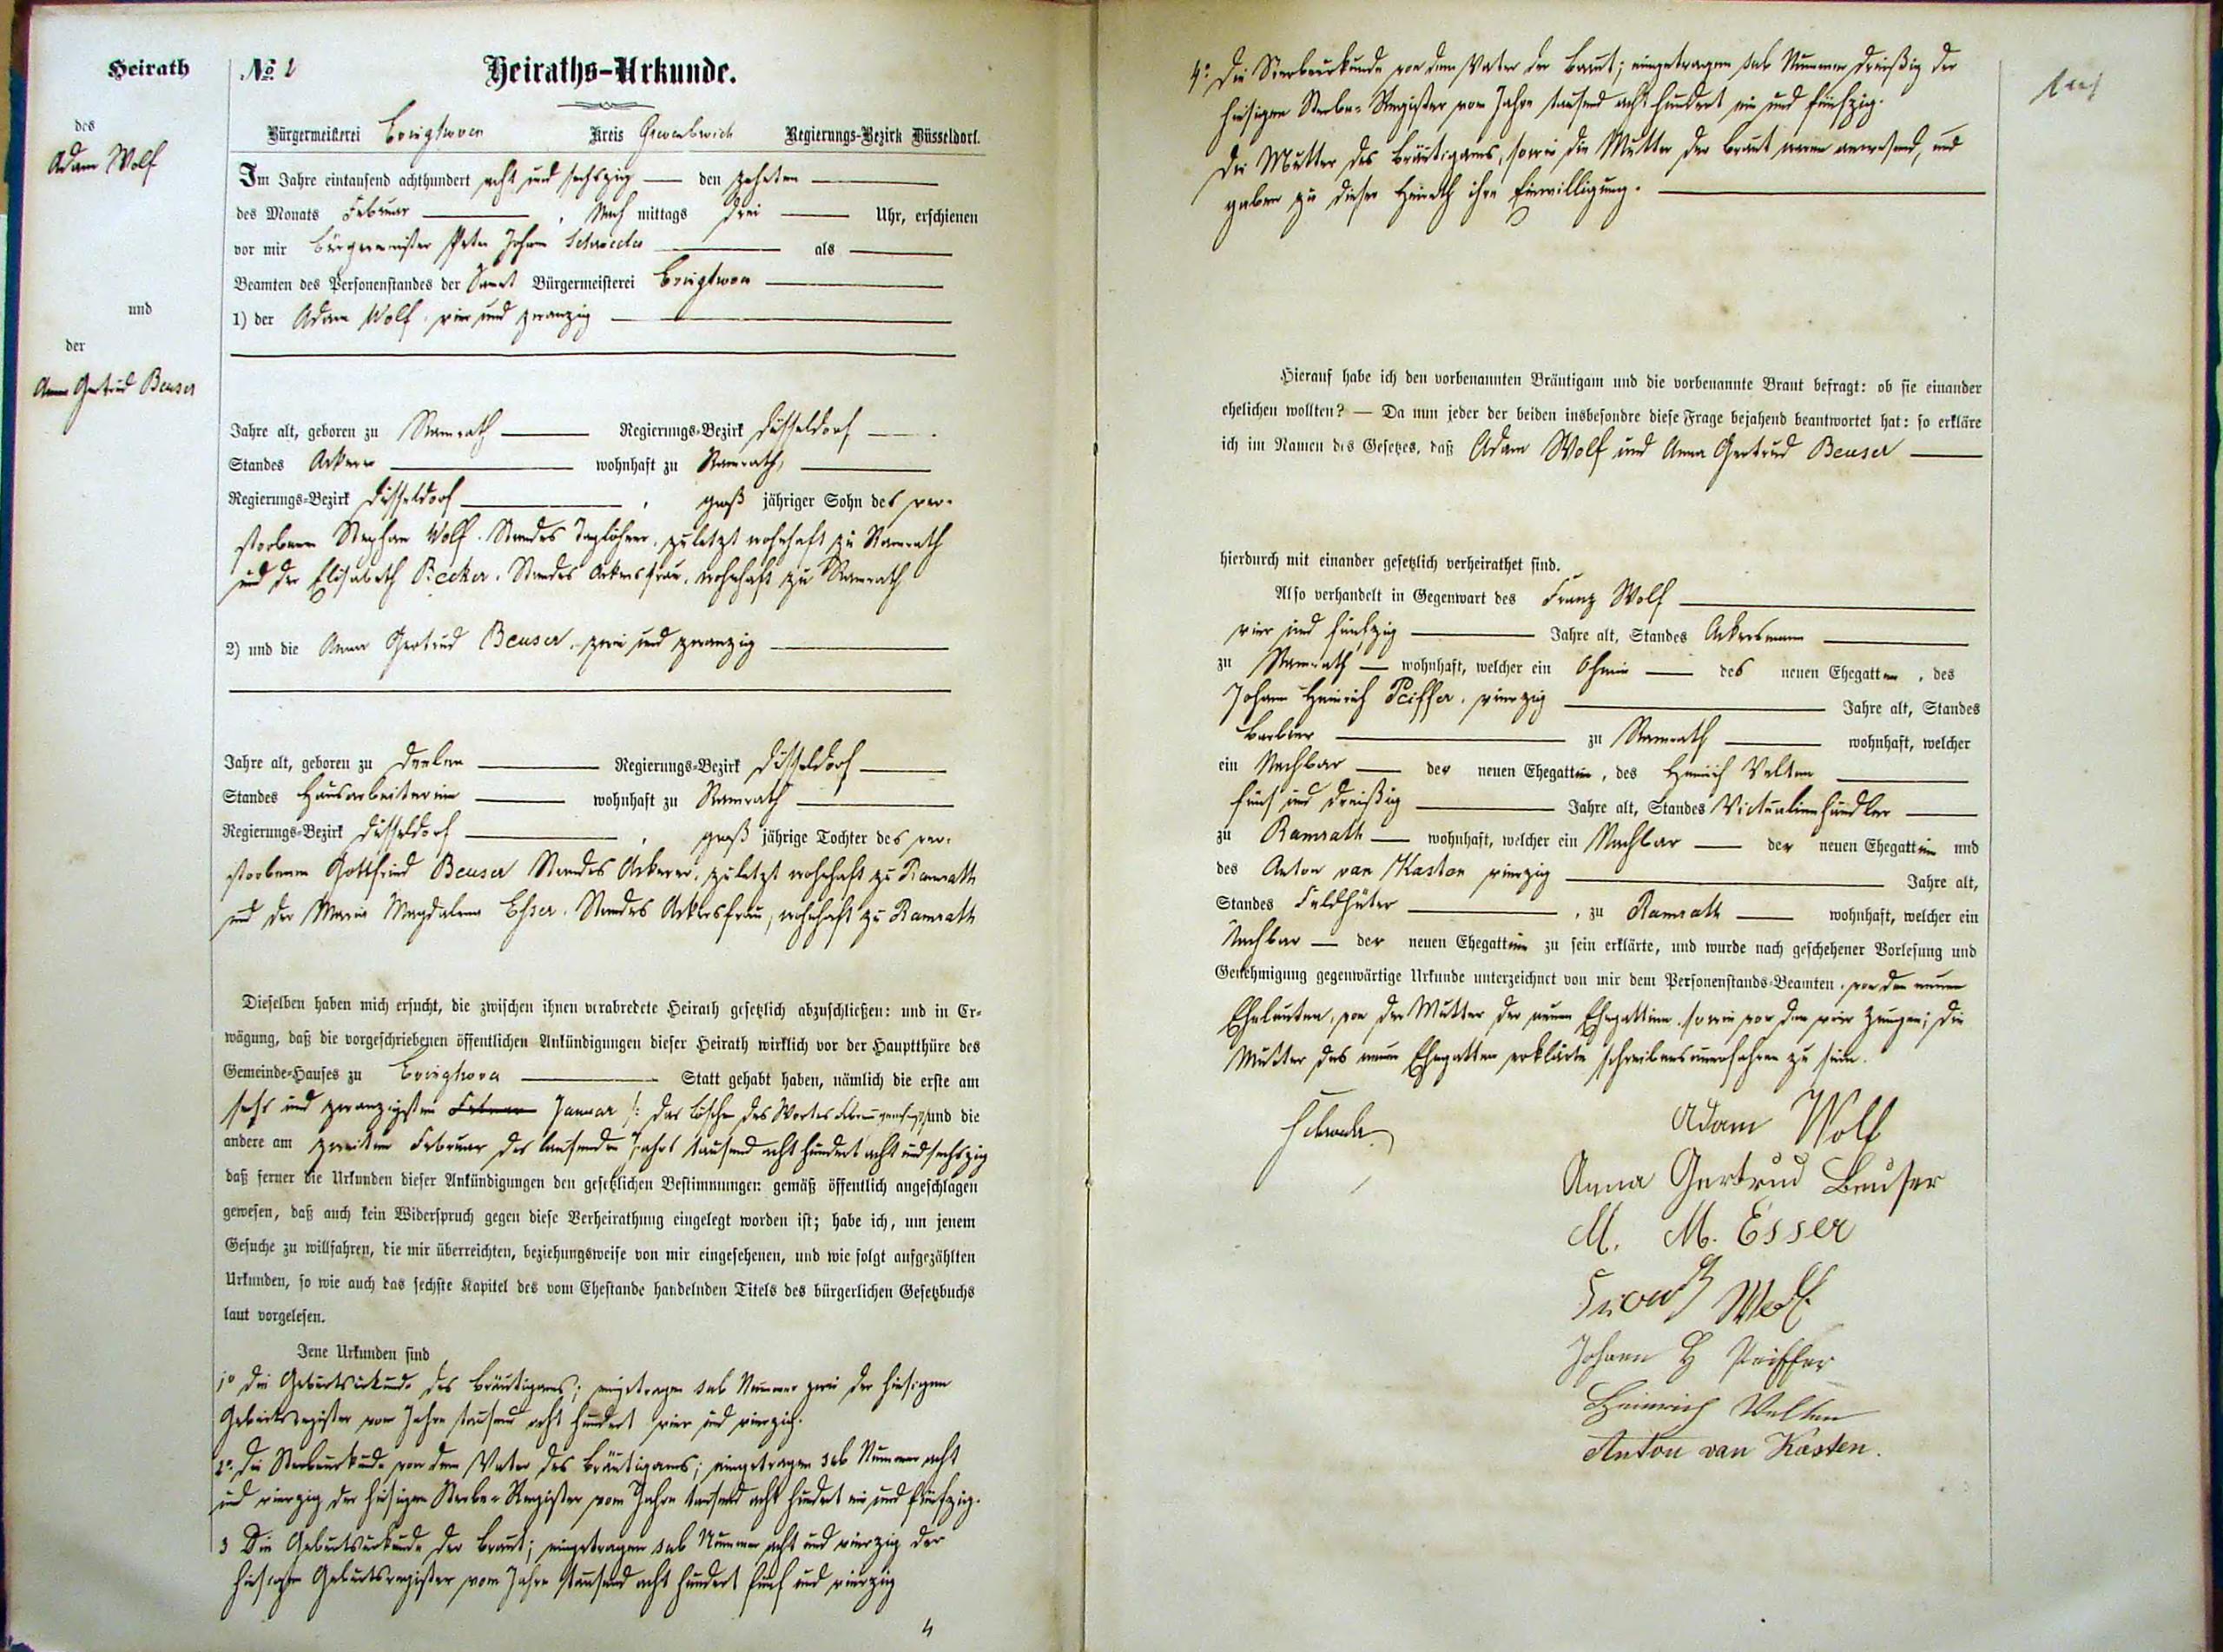 Heirath
des
Adam Wolf
und
der
Anna Gertrud Beuser
No. 2
Heiraths-Urkunde.
Bürgermeisterei Evinghoven Kreis Grevenbroich Regierungs-Bezirk Düsseldorf.
Im Jahre eintausend achthundert acht und sechszig den zehnten
des Monats Februar , Nach mittags drei Uhr, erschienen
vor mir Bürgermeister Peter Johann als
Beamten des Personenstandes der Samt Bürgermeisterei Evinghoven
1) der Adam Wolf, vier und zwanzig
Jahre alt, geboren zu Ramrath Regierungs-Bezirk Düsseldorf
Standes Ackerer wohnhaft zu Ramrath,
Regierungs-Bezirk Düsseldorf , groß jähriger Sohn des ver-
storbenen Stephan Wolf, Standes Taglöhner, zuletzt wohnhaft zu Ramrath
und der Elisabeth Becker, Standes Ackersfrau, wohnhaft zu Ramrath
2) und die Anna Gertrud Beuser, zwei und zwanzig
Jahre alt, geboren zu Deelen Regierungs-Bezirk Düsseldorf
Standes Hausarbeiterin wohnhaft zu Ramrath
Regierungs-Bezirk Düsseldorf , groß jährige Tochter des ver-
storbenen Gottfried Beuser Standes Ackerer, zuletzt wohnhaft zu Ramrath
und der Maria Magdalena Esser, Standes Ackersfrau, wohnhaft zu Ramrath
Dieselben haben mich ersucht, die zwischen ihnen verabredete Heirath gesetzlich abzuschließen: und in Er-
wägung, daß die vorgeschriebenen öffentlichen Ankündigungen dieser Heirath wirklich vor der Hauptthüre des
Gemeinde-Hauses zu Evinghoven Statt gehabt haben, nämlich die erste am
sechs und zwanzigsten Februar Januar /: das Löschen des Wortes Februar und die
andere am zweiten Februar des laufenden Jahres tausend acht hundert acht und sechszig
daß ferner die Urkunden dieser Ankündigungen den gesetzlichen Bestimmungen gemäß öffentlich angeschlagen
gewesen, daß auch kein Widerspruch gegen diese Verheirathung eingelegt worden ist; habe ich, um jenem
Gesuche zu willfahren, die mir überreichten, beziehungsweise von mir eingesehenen, und wie folgt aufgezählten
Urkunden, so wie auch das sechste Kapitel des vom Ehestande handelnden Titels des bürgerlichen Gesetzbuchs
laut vorgelesen.
Jene Urkunden sind
1° Die Geburtsurkunde des Bräutigams; eingetragen sub Nummer zwei der hiesigen
Geburtsregister vom Jahre tausend acht hundert vier und vierzig.
2° Die Sterbeurkunde von dem Vater des Bräutigams; eingetragen sub Nummer acht
und vierzig der hiesigen Sterbe-Register vom Jahre tausend acht hundert ein und fünfzig.
3 Die Geburtsurkunde der Braut; eingetragen sub Nummer acht und vierzig der
hiesigen Geburtsregister vom Jahre tausend acht hundert fünf und vierzig
4
4° Die Sterbeurkunde von dem Vater der Braut; eingetragen sub Nummer dreißig der
hiesigen Sterbe-Register vom Jahre tausend acht hundert ein und fünfzig.
Die Mutter des Bräutigams, sowie die Mutter der Braut waren anwesend, und
gaben zu dieser Heirath ihre Einwilligung.
Hierauf habe ich den vorbenannten Bräutigam und die vorbenannte Braut befragt: ob sie einander
ehelichen wollten? — Da nun jeder der beiden insbesondre diese Frage bejahend beantwortet hat: so erkläre
ich im Namen des Gesetzes, daß Adam Wolf und Anna Gertrud Beuser
hierdurch mit einander gesetzlich verheirathet sind.
Also verhandelt in Gegenwart des Franz Wolf
vier und fünfzig Jahre alt, Standes Ackersmann
zu Ramrath wohnhaft, welcher ein Ohmn des neuen Ehegatten, des
Johann Heinrich Peiffer, vierzig Jahre alt, Standes
Barbier zu Ramrath wohnhaft, welcher
ein Nachbar der neuen Ehegattin, des Heinrich Velten
fünf und dreißig Jahre alt, Standes Victualienhändler
zu Ramrath wohnhaft, welcher ein Nachbar der neuen Ehegattin und
des Anton van Kasten vierzig Jahre alt,
Standes Feldhüter , zu Ramrath wohnhaft, welcher ein
Nachbar der neuen Ehegattin zu sein erklärte, und wurde nach geschehener Vorlesung und
Genehmigung gegenwärtige Urkunde unterzeichnet von mir dem Personenstands-Beamten, von den neuen
Eheleuten, von der Mutter der neuen Ehegattinn, sowie von den vier Zeugen; die
Mutter des neuen Ehegatten erklärte schreibensunerfahren zu sein.
Adam Wolf
Anna Gertrud Beuser
M. M. Esser
Franz Wolf
Johann H Peiffer
Heinrich Velten
Anton van Kasten.